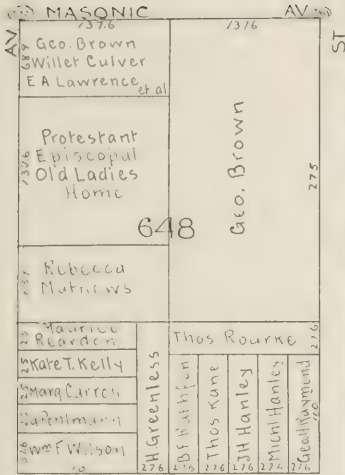 MASONIC AV
AV
ST
137.6
1376
Geo. Brown
Willet Culver
E A Lawrence
et al
Protestant
Episcopal
Old Ladies
Home
Geo. Brown
275
648
Rebecca
Maurice
Reardon
25
Kate T. Kelly
25
Marg Curren
Wm F Wilson
H. Greenless
276
Thos Rourke
Thos Kane
276
JH Hanley
276
Michl Hanley
276
Geo H Raymond
276